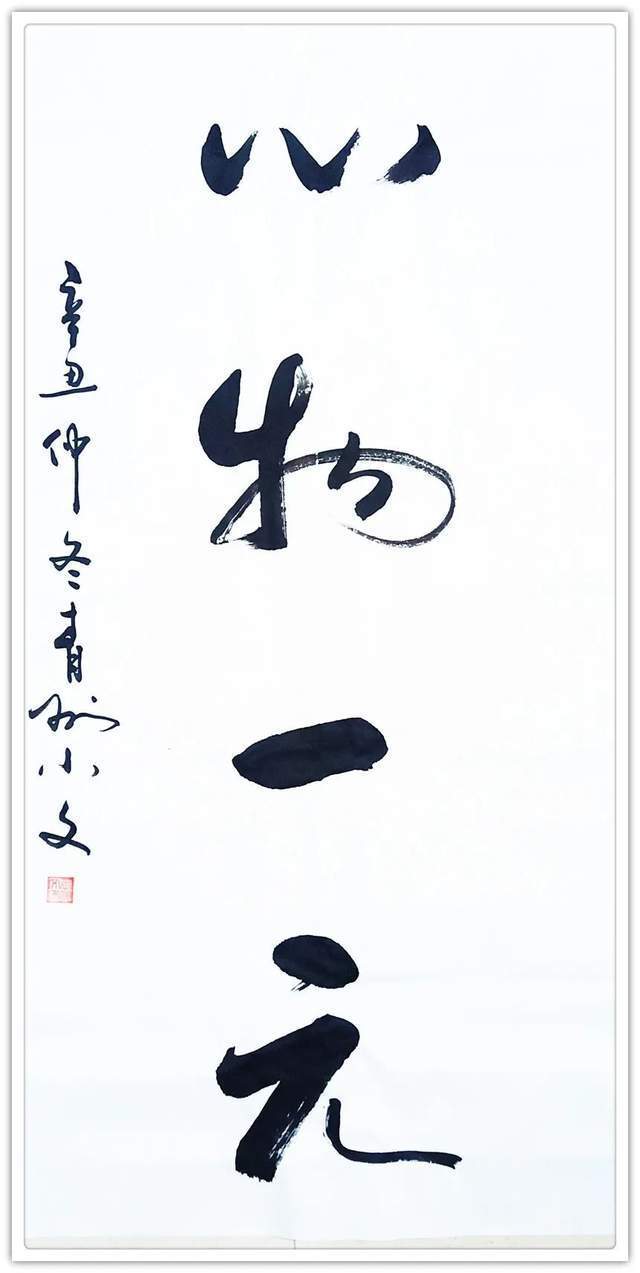 心物一元
辛丑仲冬青州小文